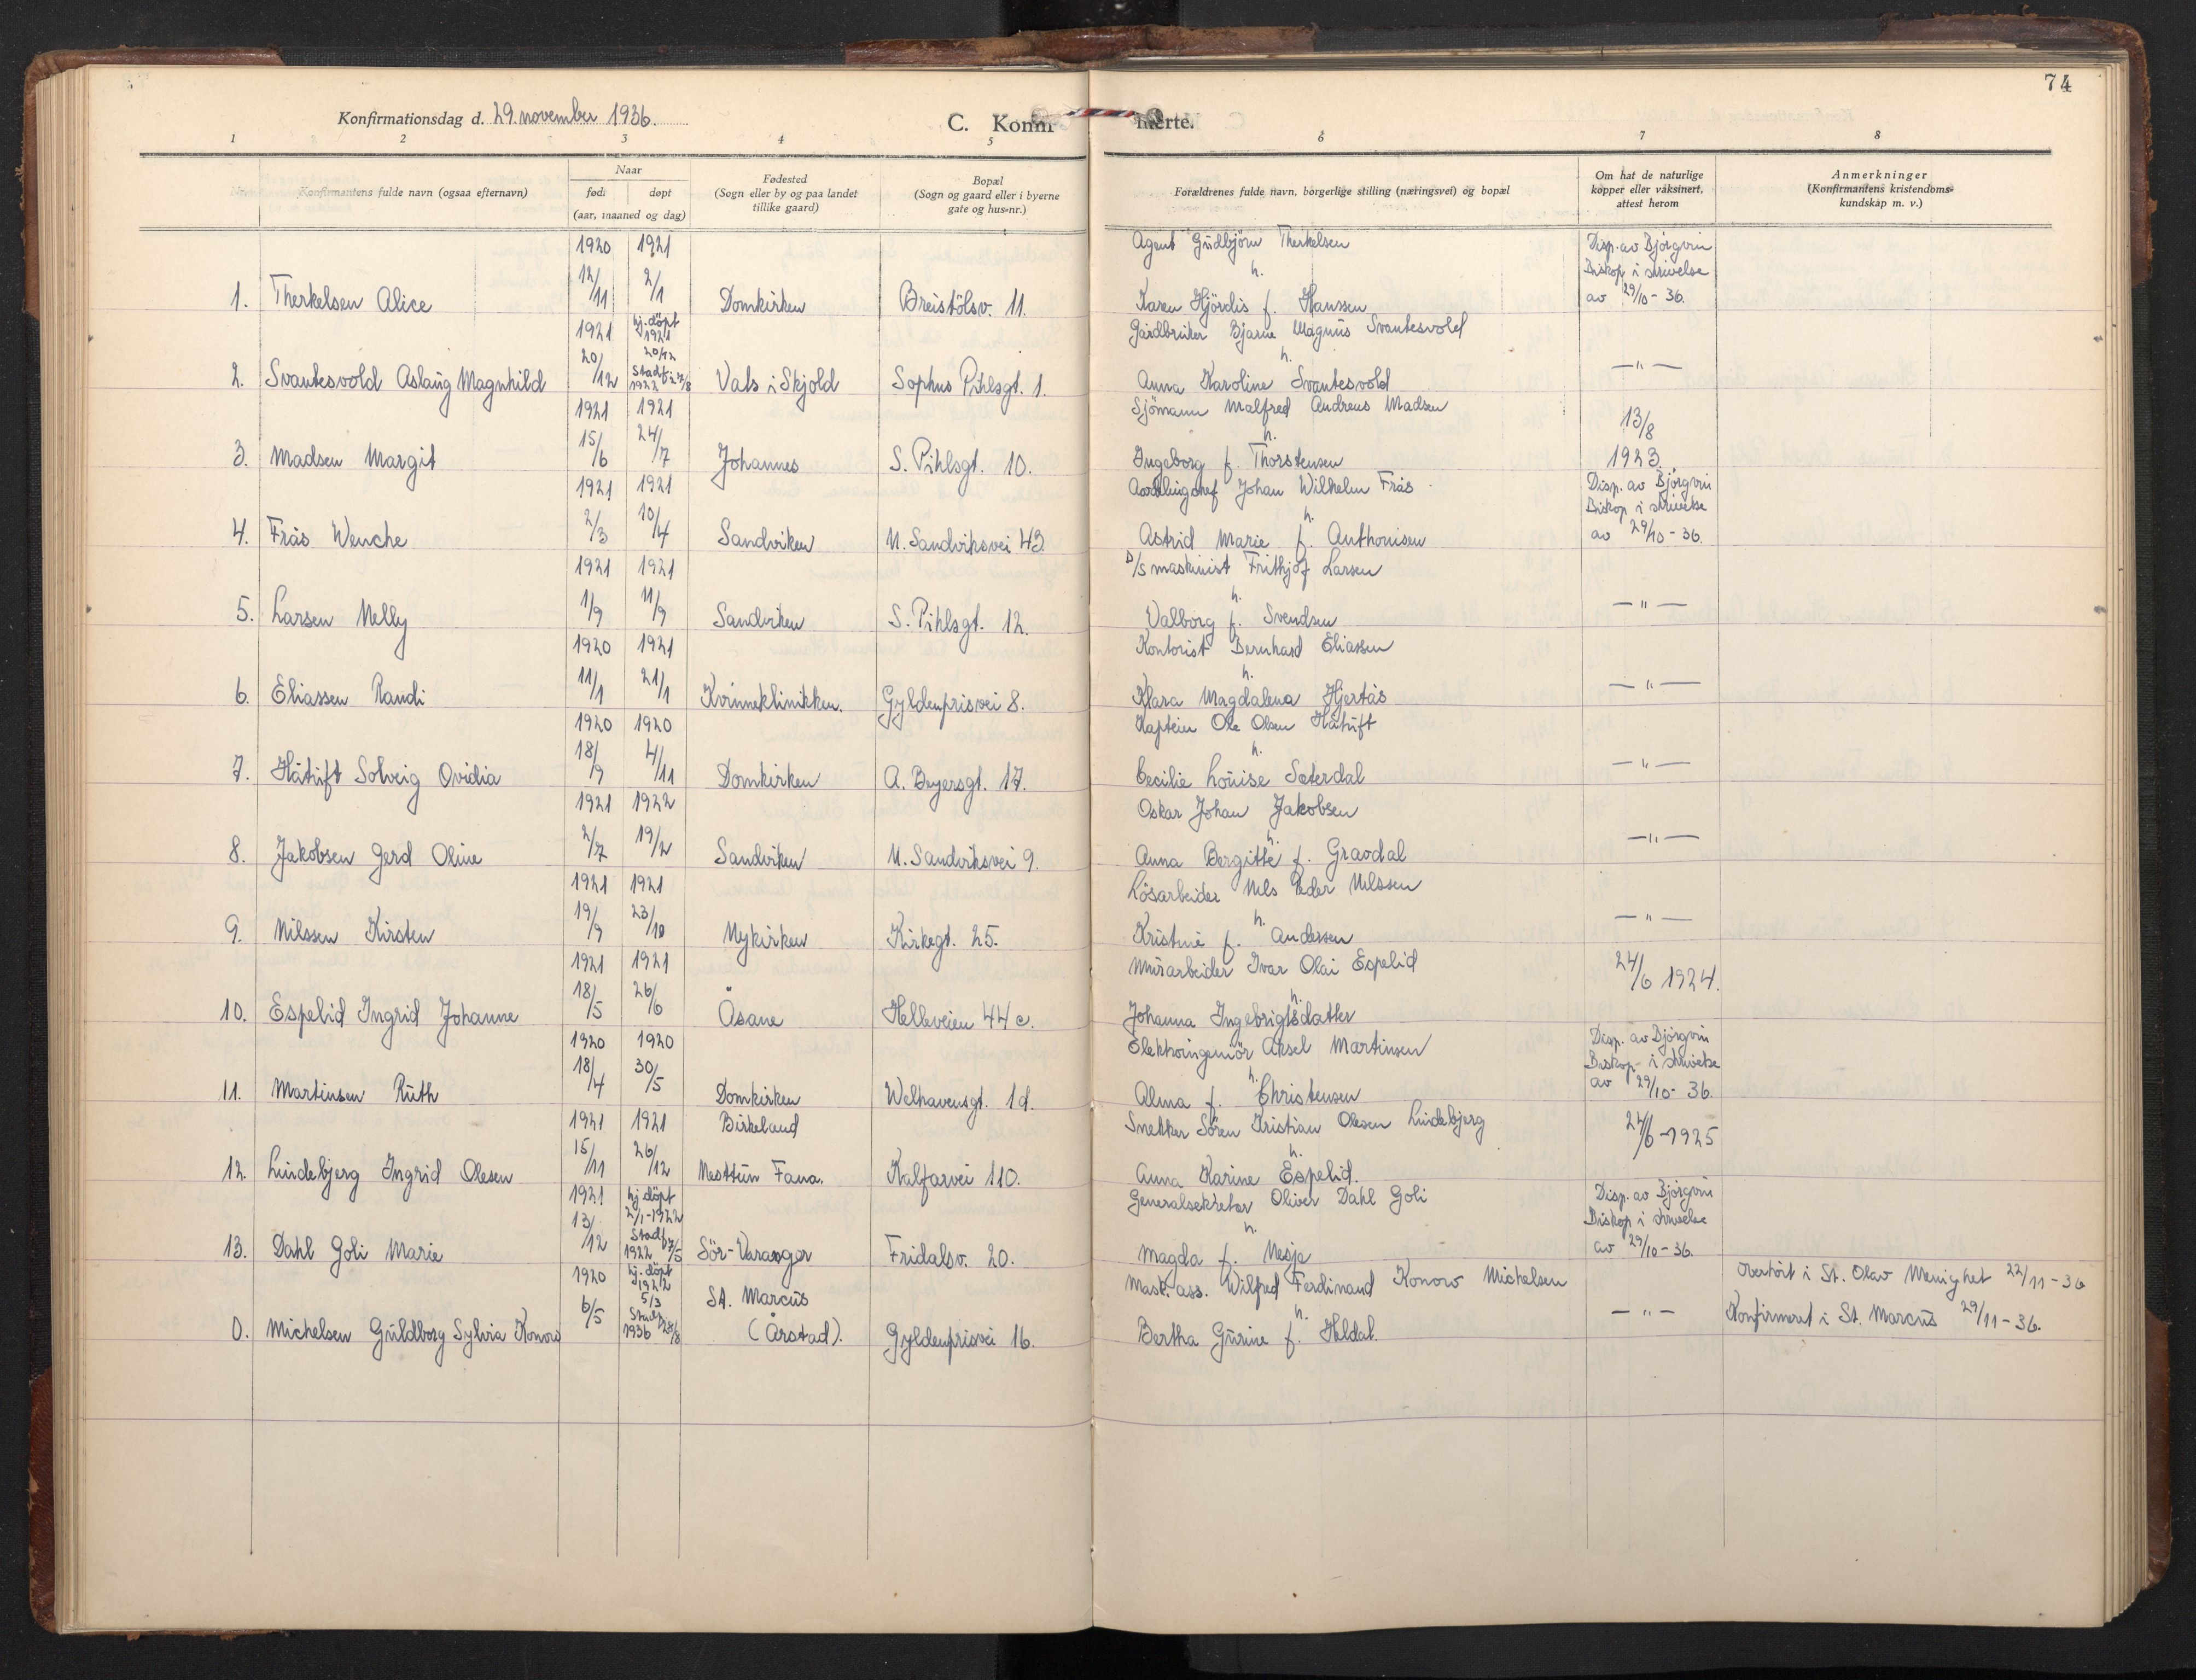 74
Konfirmationsdag d. 29. november 1936.
C. Konfir merte.
1 2 3 4 5 6 7 8
Nr. Konfirmantens fulde navn (ogsaa efternavn)
Naar
født døpt
(aar, maaned og dag)
Fødested
(Sogn eller by og paa landet
tillike gaard)
Bopæl
(Sogn og gaard eller i byerne
gate og hus-nr.)
Forældrenes fulde navn, borgerlige stilling (næringsvei) og bopæl
Om hat de naturlige
kopper eller vaksinert,
attest herom
Anmerkninger
(Konfirmantens kristendoms-
kundskap m. v.)
1920 1921 Agent Gudbjörn Therkelsen Disp. av Björgvin
12/11 2/1 h. Biskop i skrivelse
1. Therkelsen Alice Domkirken Breistölsv. 11. Karen Hjördis f. Hanssen av 29/10-36.
1921 hj. döpt 1921 Gårdbruker Bjarne Magnus Svantesvold
20/12 20/12 h.
2. Svantesvold Aslaug Magnhild Stadf. 1922 Vats i Skjold Sophus Pihlsgt. 1. Anna Karoline Svantesvold — " —
1921 1921 Sjömann Malfred Andreas Madsen 13/8
15/6 24/7 h.
3. Madsen Margit Johannes S. Pihlsgt. 10. Ingeborg f. Thorstensen 1923.
1921 1921 Avdelingchef Johan Wilhelm Frås Disp. av Björgvin
2/3 10/4 h. Biskop i skrivelse
4. Frås Wenche Sandviken N. Sandviksvei 43. Astrid Marie f. Anthonisen av 29/10-36.
1921 1921 D/S maskinist Frithjof Larsen
1/9 11/9 h. — " —
5. Larsen Nelly Sandviken S. Pihlsgt. 12. Valborg f. Svendsen
1920 1921 Kontorist Bernhard Eliassen
11/1 21/1 h. — " —
6. Eliassen Randi Kvinneklinikken. Gyldenprisvei 8. Klara Magdalena Hjertås
1920 1920 Kaptein Ole Olsen Håtuft
18/9 4/11 h. — " —
7. Håtuft Solveig Ovidia Domkirken A. Beyersgt. 17. Cecilie Louise Sæterdal
1921 1922 Oskar Johan Jakobsen
2/7 19/2 h. — " —
8. Jakobsen Gerd Oline Sandviken N. Sandviksvei 9. Anna Bergitte f. Gravdal
1921 1921 Lösarbeider Nils Peder Nilssen
19/9 23/10 h. — " —
9. Nilssen Kirsten Nykirken Kirkegt. 25. Kristine f. Andersen
1921 1921 Murarbeider Ivar Olai Espelid 24/6 1924.
18/5 26/6 h.
10. Espelid Ingrid Johanne Åsane Helleveien 44 c. Johanna Ingebrigtsdatter
1920 1920 Elektroingeniör Aksel Martinsen Disp. av Björgvin
18/4 30/5 h. Biskop i skrivelse
11. Martinsen Ruth Domkirken Welhavensgt. 1d. Alma f. Christensen av 29/10-36.
1921 1921 Birkeland Snekker Sören Kristian Olesen Lindebjerg 24/6-1925
15/11 26/12 h.
12. Lindebjerg Ingrid Olesen Nesttun Fana. Kalfarvei 110. Anna Karine Espelid.
1921 hj döpt 2/1-1922 Generalsekretær Oliver Dahl Goli Disp. av Björgvin
13/12 h. Biskop i skrivelse
13. Dahl Goli Marie Stadf 1922 7/5 Sör-Varanger Fridalsv. 20. Magda f. Nesje av 29/10-36.
1920 hj. döpt 1922 Mask. ass. Wilfred Ferdinand Konow Michelsen Overhört i St. Olav Menighet 22/11-36
6/5 5/3 St. Marcus h.
0. Michelsen Guldborg Sylvia Konow Stadf. 1936 (Årstad). Gyldenprisvei 16. Bertha Gurine f. Heldal. — " — Konfirmert i St. Marcus 29/11-36.